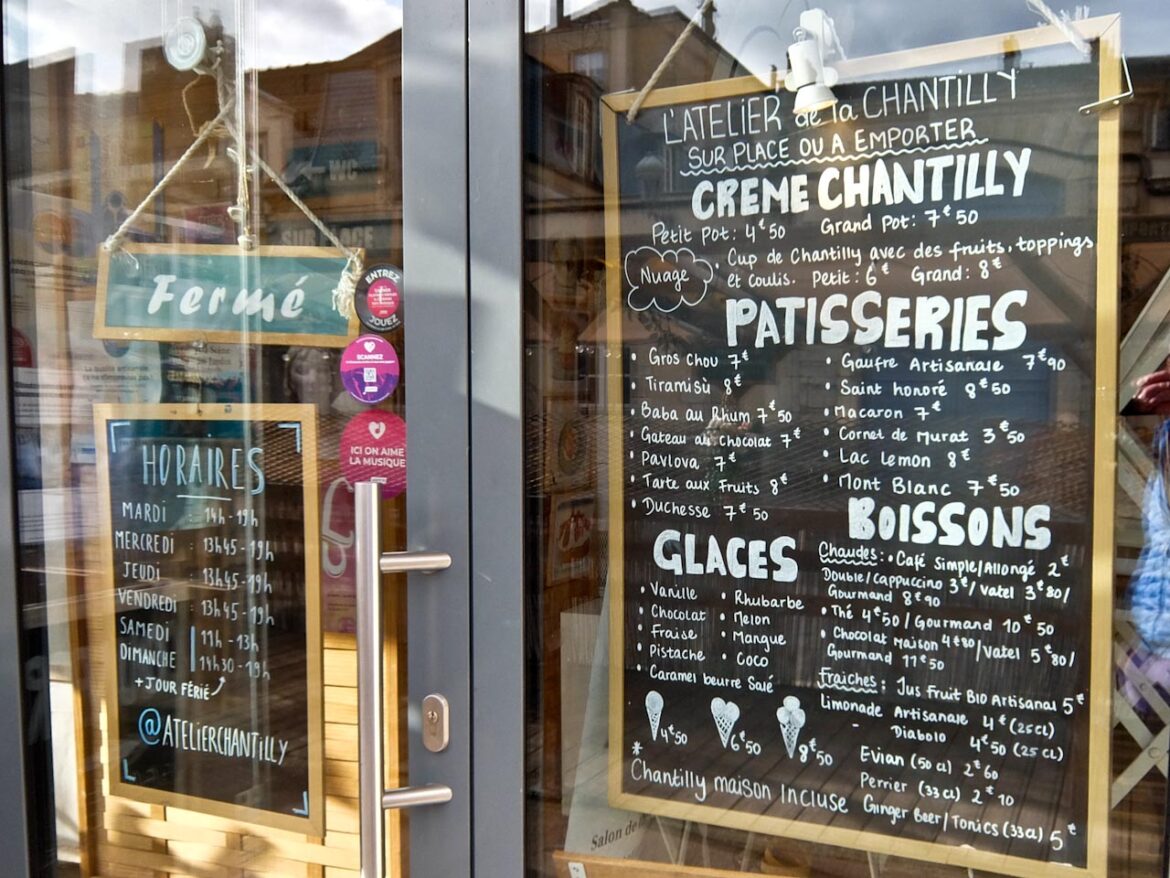 WC
SUR PLACE
Fermé
ENTREZ
JOUEZ
SCANNEZ
ICI ON AIME
LA MUSIQUE
HORAIRES
MARDI : 14h - 19h
MERCREDI : 13h45 - 19h
JEUDI : 13h45 - 19h
VENDREDI : 13h45 - 19h
SAMEDI 11h - 13h
DIMANCHE 14h30 - 19h
+ JOUR FÉRIÉ
@ATELIERCHANTILLY
L'ATELIER de la CHANTILLY
SUR PLACE OU A EMPORTER
CREME CHANTILLY
Petit Pot: 4€50 Grand Pot: 7€50
Nuage
Cup de Chantilly avec des fruits, toppings
et coulis. Petit: 6€ Grand: 8€
PATISSERIES
• Gros chou 7€
• Tiramisù 8€
• Baba au Rhum 7€50
• Gateau au chocolat 7€
• Pavlova 7€
• Tarte aux Fruits 8€
• Duchesse 7€50
• Gaufre Artisanale 7€90
• Saint honoré 8€50
• Macaron 7€
• Cornet de Murat 3€50
• Lac Lemon 8€
• Mont Blanc 7€50
GLACES
• Vanille
• Chocolat
• Fraise
• Pistache
• Caramel beurre Salé
• Rhubarbe
• Melon
• Mangue
• Coco
4€50 6€50 8€50
* Chantilly maison incluse
BOISSONS
Chaudes: • Café Simple/Allongé 2€
Double/Cappuccino 3€/Vatel 3€80/
Gourmand 8€90
• Thé 4€50/Gourmand 10€50
• Chocolat Maison 4€80/Vatel 5€80/
Gourmand 11€50
Fraiches: Jus Fruit BIO Artisanal 5€
Limonade Artisanale 4€ (25cl)
Diabolo 4€50 (25cl)
Evian (50 cl) 2€60
Perrier (33cl) 2€10
Ginger Beer/Tonics (33cl) 5€
Salon de